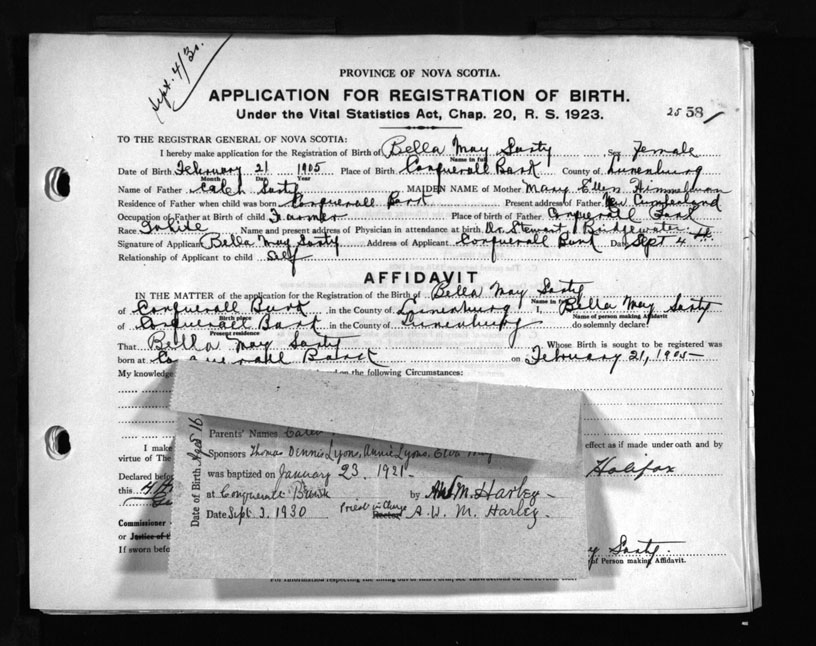 Sept. 4/30.
PROVINCE OF NOVA SCOTIA.
APPLICATION FOR REGISTRATION OF BIRTH.
Under the Vital Statistics Act, Chap. 20, R. S. 1923.
25 58
TO THE REGISTRAR GENERAL OF NOVA SCOTIA:
I hereby make application for the Registration of Birth of Bella May Sarty Sex Female
Name in full
Date of Birth February 21 1905 Place of Birth Conquerall Bank County of Lunenburg
Month Day Year
Name of Father Caleb Sarty MAIDEN NAME of Mother Mary Ellen Himmelman
Residence of Father when child was born Conquerall Bank Present address of Father New Cumberland
Occupation of Father at Birth of child Farmer Place of birth of Father Conquerall Bank
Race White Name and present address of Physician in attendance at birth Dr. Stewart, Bridgewater
Signature of Applicant Bella May Sarty Address of Applicant Conquerall Bank Date Sept 4
Relationship of Applicant to child Self
AFFIDAVIT
IN THE MATTER of the application for the Registration of the Birth of Bella May Sarty
Name in
of Conquerall Bank in the County of Lunenburg I, Bella May Sarty
Birth place Name of person making Affidavit
of Conquerall Bank in the County of Lunenburg do solemnly declare:
Present residence
That Bella May Sarty Whose Birth is sought to be registered was
born at Conquerall Bank on February 21, 1905
My knowledge on the following Circumstances:
Parents' Names Caleb
Sponsors Thomas Dennis Lyons, Annie Lyons,
was baptized on January 23. 1921
at Conquerall Bank by A.W.M. Harley
Date Sept. 3. 1930 Priest in Charge Rector A. W. M. Harley.
Date of Birth Aged 16
I make effect as if made under oath and by
virtue of The Halifax
Declared before
this 4th
Commissioner
or Justice of th
If sworn befo Sarty.
of Person making Affidavit.